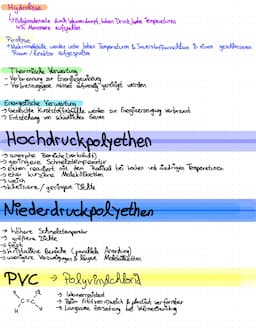 Hydrolyse
↳ Kunststoffe durch Wasserdampf, hohen Druck, hohe Temperaturen
in Monomere aufspalten
Pyrolyse
→ Makromoleküle werden unter hohen Temperaturen & Sauerstoffausschluss in einem geschlossenen
Raum / Reaktor aufgespalten
Thermische Verwertung
→ Verbrennung zur Energiegewinnung
→ Verbrennungsgase müssen aufwendig gereinigt werden
Energetische Verwertung
→ Kunststoffabfälle werden zur Energieerzeugung verbrannt
→ Entstehung von schädlichen Gasen
Hochdruckpolyethen
→ amorphe Bereiche
→ geringere Schmelztemperatur
→ Ethen reagiert mit dem Radikal bei hohen und niedrigen Temperaturen
→ eher kürzere Molekülketten
→ weich
→ geringere Dichte
Niederdruckpolyethen
→ höhere Schmelztemperatur
→ größere Dichte
→ fest
→ kristalline Bereiche (parallele Anordnung)
→ wenigere Verzweigungen & längere Molekülketten
PVC → Polyvinylchlorid
H
C=C
H
→
→ beim Erhitzen plastisch verformbar
→ Langsame Zersetzung bei Wärmeeinwirkung